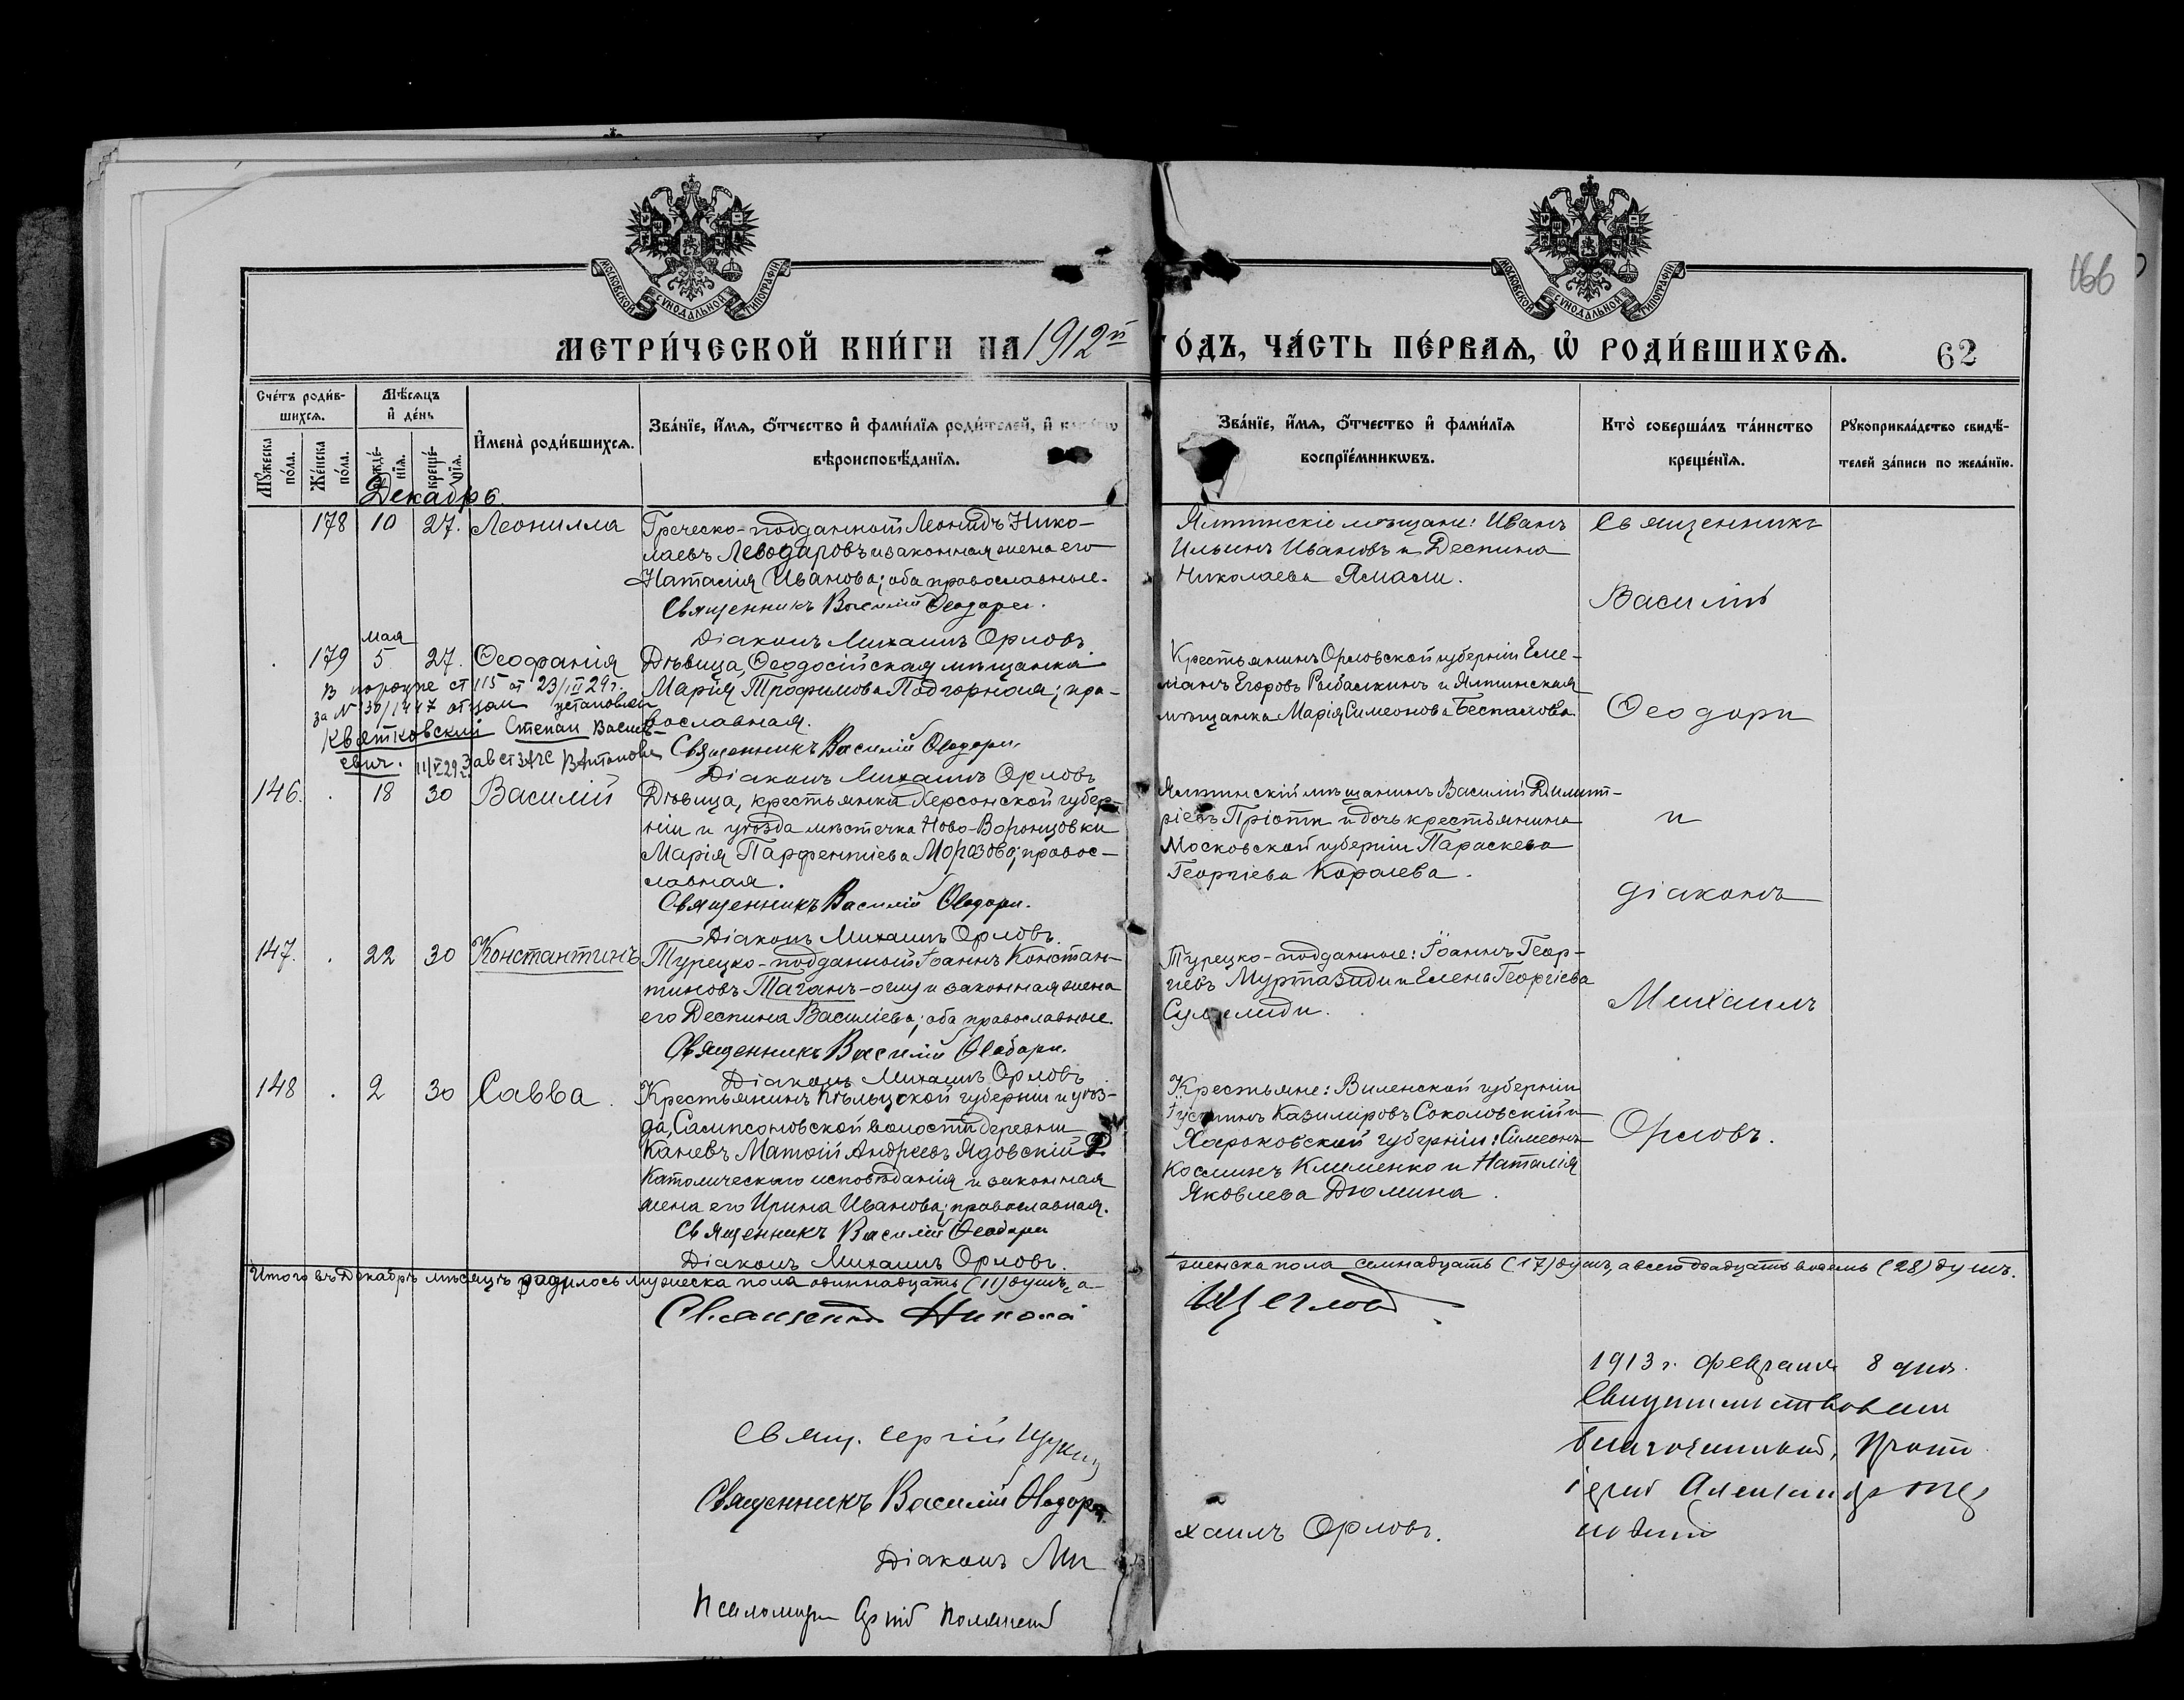 166
МОСКОВСКОЙ СУНОДАЛЬНОЙ ТИПОГРАФІИ
МОСКОВСКОЙ СУНОДАЛЬНОЙ ТИПОГРАФІИ
МЕТРИ́ЧЕСКОЙ КНИ́ГИ НА 1912й
ГО́ДЪ, ЧА́СТЬ ПЕ́РВАѦ, Ѡ҆ РОДИ́ВШИХСѦ.
62
Сче́тъ роди́в-
шихсѧ.
Мꙋжеска по́ла.
Же́нска по́ла.
Мѣ́сѧцъ
и҆ де́нь
рожде́-нїѧ.
креще́-нїѧ.
И҆мена̀ роди́вшихсѧ.
Зва́нїе, и҆́мѧ, о҆́тчество и҆ фами́лїѧ роди́телей, и҆
вѣроисповѣ́данїѧ.
Зва́нїе, и҆́мѧ, о҆́тчество и҆ фами́лїѧ
воспрїе́мникѡвъ.
Кто̀ соверша́лъ та́инство
креще́нїѧ.
Рꙋкоприкла́дство свидѣ́-
телей за́писи по жела́нїю.
Декабрь.
178 10 27. Леонилла
Греческо-подданный Леонидъ Нико-
лаевъ Леводаровъ и законная жена его
Наталія Иванова; оба православные.
Священникъ Василій Ѳеодори.
Діаконъ Михаилъ Орловъ.
Ялтинскіе мѣщане: Иванъ
Ильинъ Ивановъ и Деспина
Николаева Ялмали.
Священникъ
Василій
Ѳеодори
и
діаконъ
Михаилъ
Орловъ.
мая
179 5 27. Ѳеофанія
Дѣвица, Ѳеодосійская мѣщанка
Марія Трофимова Подгорная; пра-
вославная.
Священникъ Василій Ѳеодори.
Діаконъ Михаилъ Орловъ
Крестьянинъ Орловской губерніи Еме-
льянъ Егоровъ Рыбалкинъ и Ялтинская
мѣщанка Марія Симеонова Беспалова.
В порядке ст 115 от 23/III 29 г.
за № 130/1447 отцом установлен
Квятковский Степан Василь-
евич. 11/V 29 Завст ЗАГС ВАнтонова
146. 18 30 Василій
Дѣвица, крестьянка Херсонской губер-
ніи и уѣзда мѣстечка Ново-Воронцовки
Марія Парфентіева Морозова; правос-
лавная.
Священникъ Василій Ѳеодори.
Діаконъ Михаилъ Орловъ.
Ялтинскій мѣщанинъ Василій Димит-
ріевъ Пріоти и дочь крестьянина
Московской губерніи Параскева
Георгіева Королева.
147. 22 30 Константинъ
Турецко-подданный Іоаннъ Констан-
тиновъ Таганъ-оглу и законная жена
его Деспина Василіева; оба православные.
Священникъ Василій Ѳеодори.
Діаконъ Михаилъ Орловъ
Турецко-подданные: Іоаннъ Геор-
гіевъ Муртазиди и Елена Георгіева
148 2 30 Савва.
Крестьянинъ Кѣльцской губерніи и уѣз-
да, Сампсоновской волости деревни
Каневъ Матѳій Андреевъ Ядовскій Р.
Католическаго исповѣданія и законная
жена его Ирина Иванова; православная.
Священникъ Василій Ѳеодори
Діаконъ Михаилъ Орловъ.
Крестьяне: Виленской губерніи
Іустинъ Казиміровъ Соколовскій и
Харьковской губерніи: Симеонъ
Косминъ Клименко и Наталія
Яковлева Дюмина.
Итого въ Декабрѣ мѣсяцѣ родилось мужеска пола одиннадцать (11) душъ, а
женска пола семнадцать (17) душъ, а всего двадцать восемь (28) душъ.
Священникъ Николай
Щегловъ
Свящ. Сергій Щукин
Священникъ Василій Ѳеодори
Діаконъ Ми
хаилъ Орловъ.
Псаломщикъ
1913 г. февраля 8 дня.
Свидѣтельствовалъ
благочинный, Прото
іерей Александръ